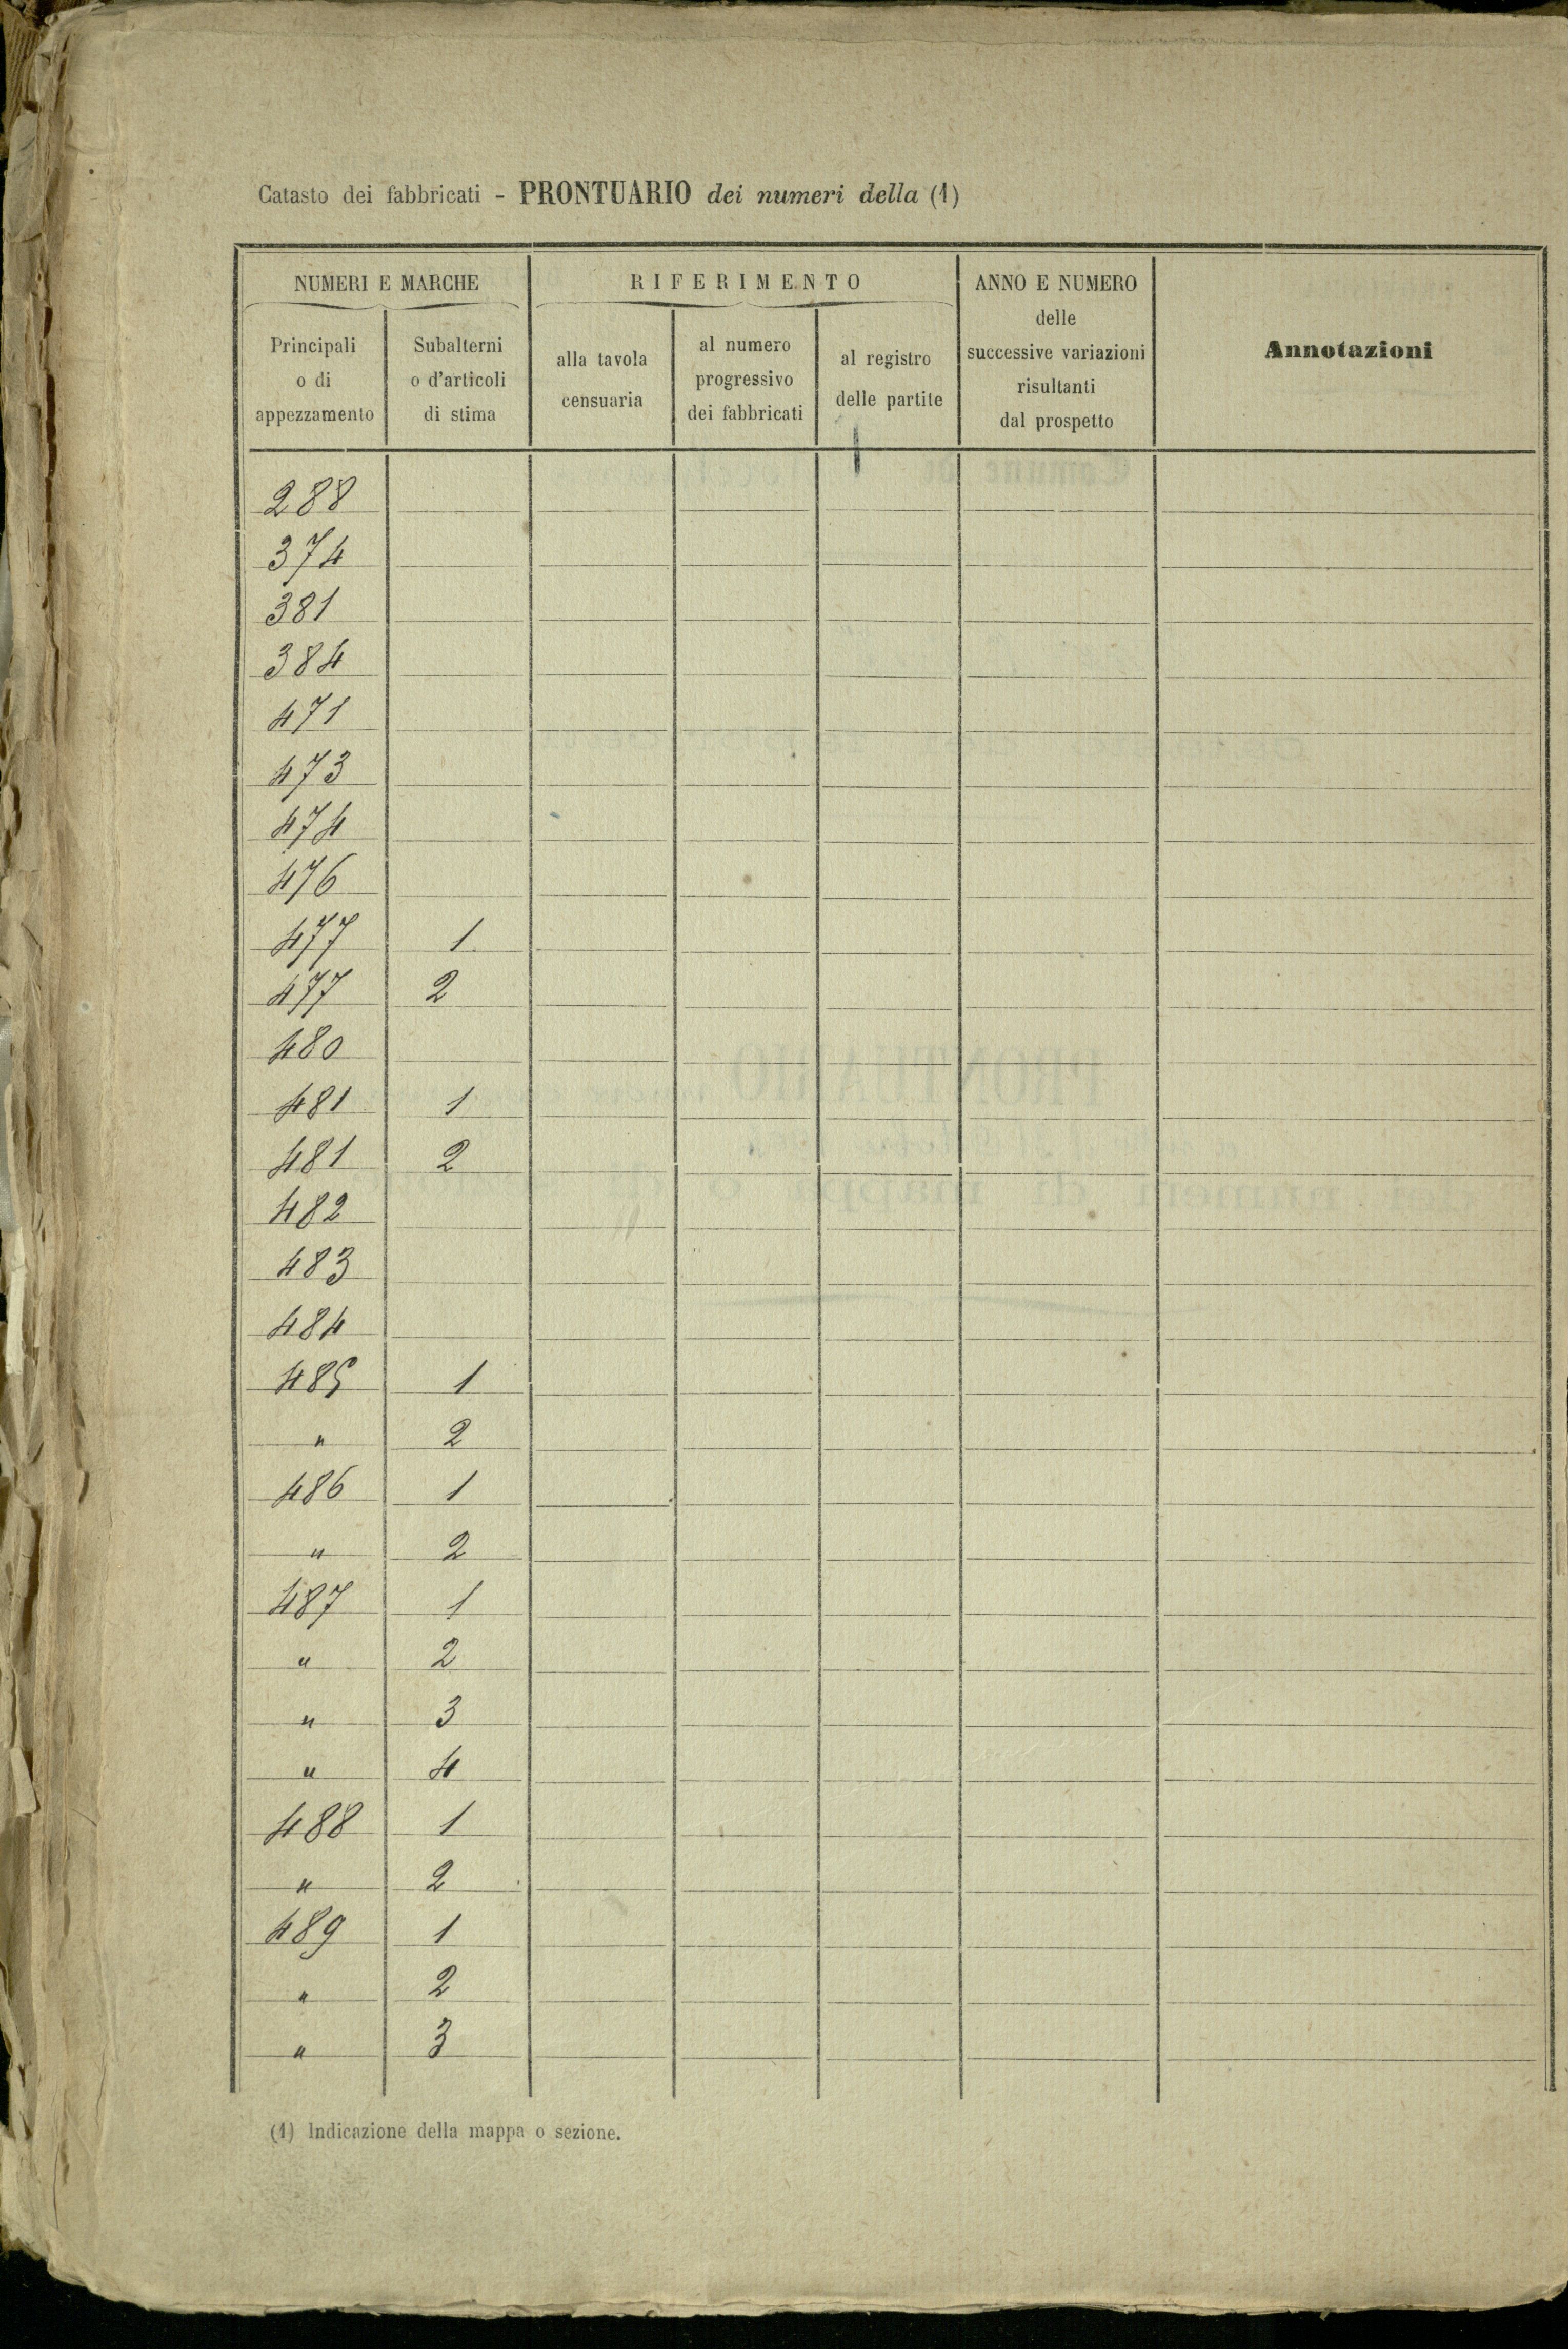 Catasto dei fabbricati - PRONTUARIO dei numeri della (1)
NUMERI E MARCHE
RIFERIMENTO
ANNO E NUMERO
delle
successive variazioni
risultanti
dal prospetto
Annotazioni
Principali
o di
appezzamento
Subalterni
o d'articoli
di stima
alla tavola
censuaria
al numero
progressivo
dei fabbricati
al registro
delle partite
288
374
381
384
471
473
474
476
477 1
477 2
480
481 1
481 2
482
483
484
485 1
" 2
486 1
" 2
487 1
" 2
" 3
" 4
488 1
" 2
489 1
" 2
" 3
(1) Indicazione della mappa o sezione.